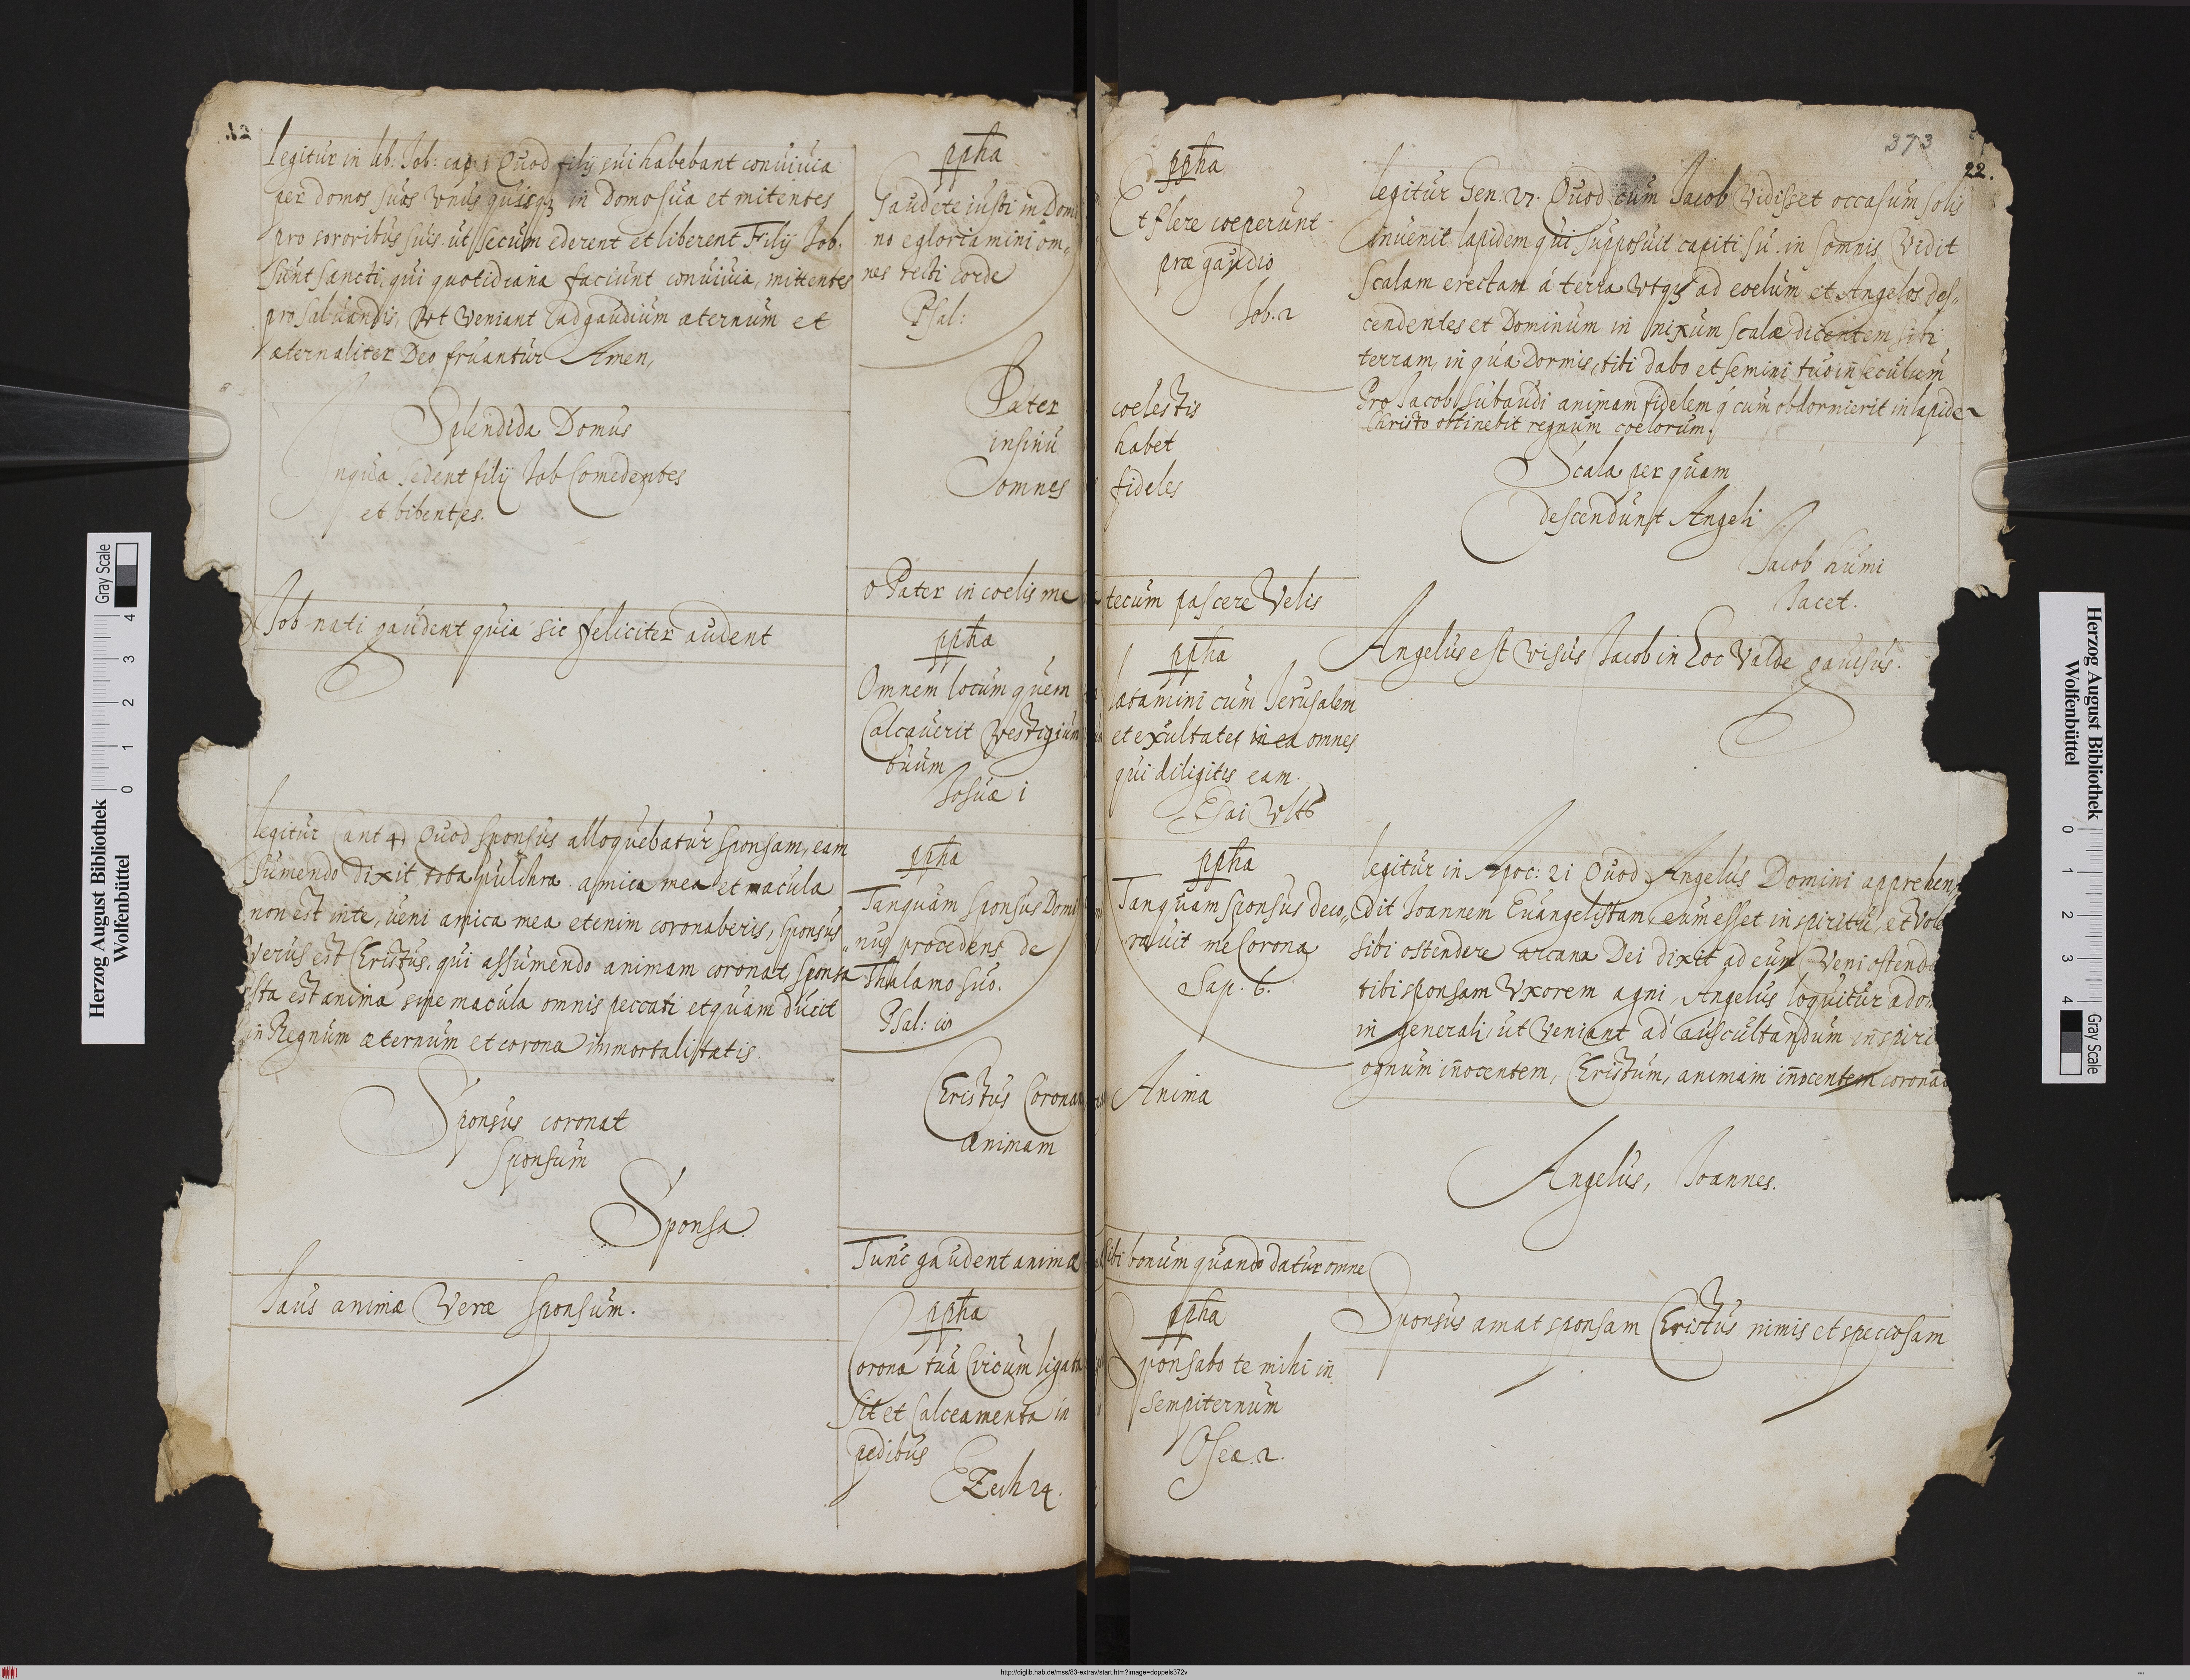 Legitur in lib: Job: cap: i Quod filij sui habebant conuiuia
per domos suas vnus quisq3 in Domo sua et mitentes
pro sororibus suis ut secum ederent et biberent Filij Job,
sunt sancti, qui quotidiana faciunt conuiuia, mittentes
pro saluandis, Vt veniant ad gaudium æternum et
æternaliter Deo fruantur Amen,
Splendida Domus
In qua sedent filij Job Comedentes
et bibentes.
Job nati gaudent quia sic feliciter audent
legitur Cant 4, Quod sponsus alloquebatur sponsam, eam
sumendo dixit tota pulchra amica mea et macula
non est in te, ueni amica mea etenim coronaberis, Sponsus
verus est Christus, qui assumendo animam coronat sponsa
ista est anima sine macula omnis peccati et quam ducit
in Regnum æternum et corona immortalitatis
Sponsus coronat
Sponsum
Sponsa.
Laus animæ Veræ sponsum.
ppha
Gaudete iusti in Domi
no e gloriamini om,,
nes recti corde
Psal:
Pater
in sinu
omnes
o Pater in coelis me
ppha
Omnem locum quem
Calcauerit Vestigium
tuum
Josuæ i
ppha
Tanquam sponsus Domi
nus procedens de
Thalamo suo.
Psal: io
Christus Corona
animam
Tunc gaudent animæ
ppha
Corona tua Circum ligata
sit et Calceamenta in
pedibus
Ezech 24.
373
22.
ppha
Et flere coeperunt
præ gaudio
Job. 2
coelestis
habet
fideles
tecum pascere Velis
ppha
lætamini cum Jerusalem
et exultates in ea omnes
qui diligitis eam.
Esai Vlt
ppha
Tanquam sponsus deco,,
rauit me Corona
Sap. 6.
Anima
sibi bonum quando datur omne
ppha
Sponsabo te mihi in
sempiternum
Oseæ. 2.
legitur Gen: Quod cum Jacob Vidisset occasum solis
inuenit lapidem qui supposuit capiti su. in somnis Vidit
Scalam erectam á terra vtq3 ad coelum et Angelos des,,
cendentes et Dominum in nixum scalæ dicentem sibi
terram, in qua Dormis, tibi dabo et semini tuo in seculum
Pro Jacob subaudi animam fidelem q cum obdormierit in lapide
Christo obtinebit regnum coelorum.
Scala per quam
descendunt Angeli
Jacob humi
Jacet.
Angelus est visus Jacob in Loc Valde gauisus.
legitur in Apoc: 21 Quod Angelus Domini apprehen
dit Joannem Euangelistam, cum esset in spiritu, et Vol
sibi ostendere arcana Dei dixit ad eum Veni ostend
tibi sponsam Vxorem agni, Angelus loquitur ad
in generali, ut Veniant ad auscultandum in spiri
agnum innocentem, Christum, animam innocentem corona
Angelus, Joannes.
Sponsus amat sponsam Christus nimis et speciosam
Herzog August Bibliothek
Wolfenbüttel
0 1 2 3 4
Gray Scale
Herzog August Bibliothek
Wolfenbüttel
0 1 2 3 4
Gray Scale
http://diglib.hab.de/mss/83-extrav/start.htm?image=doppels372v